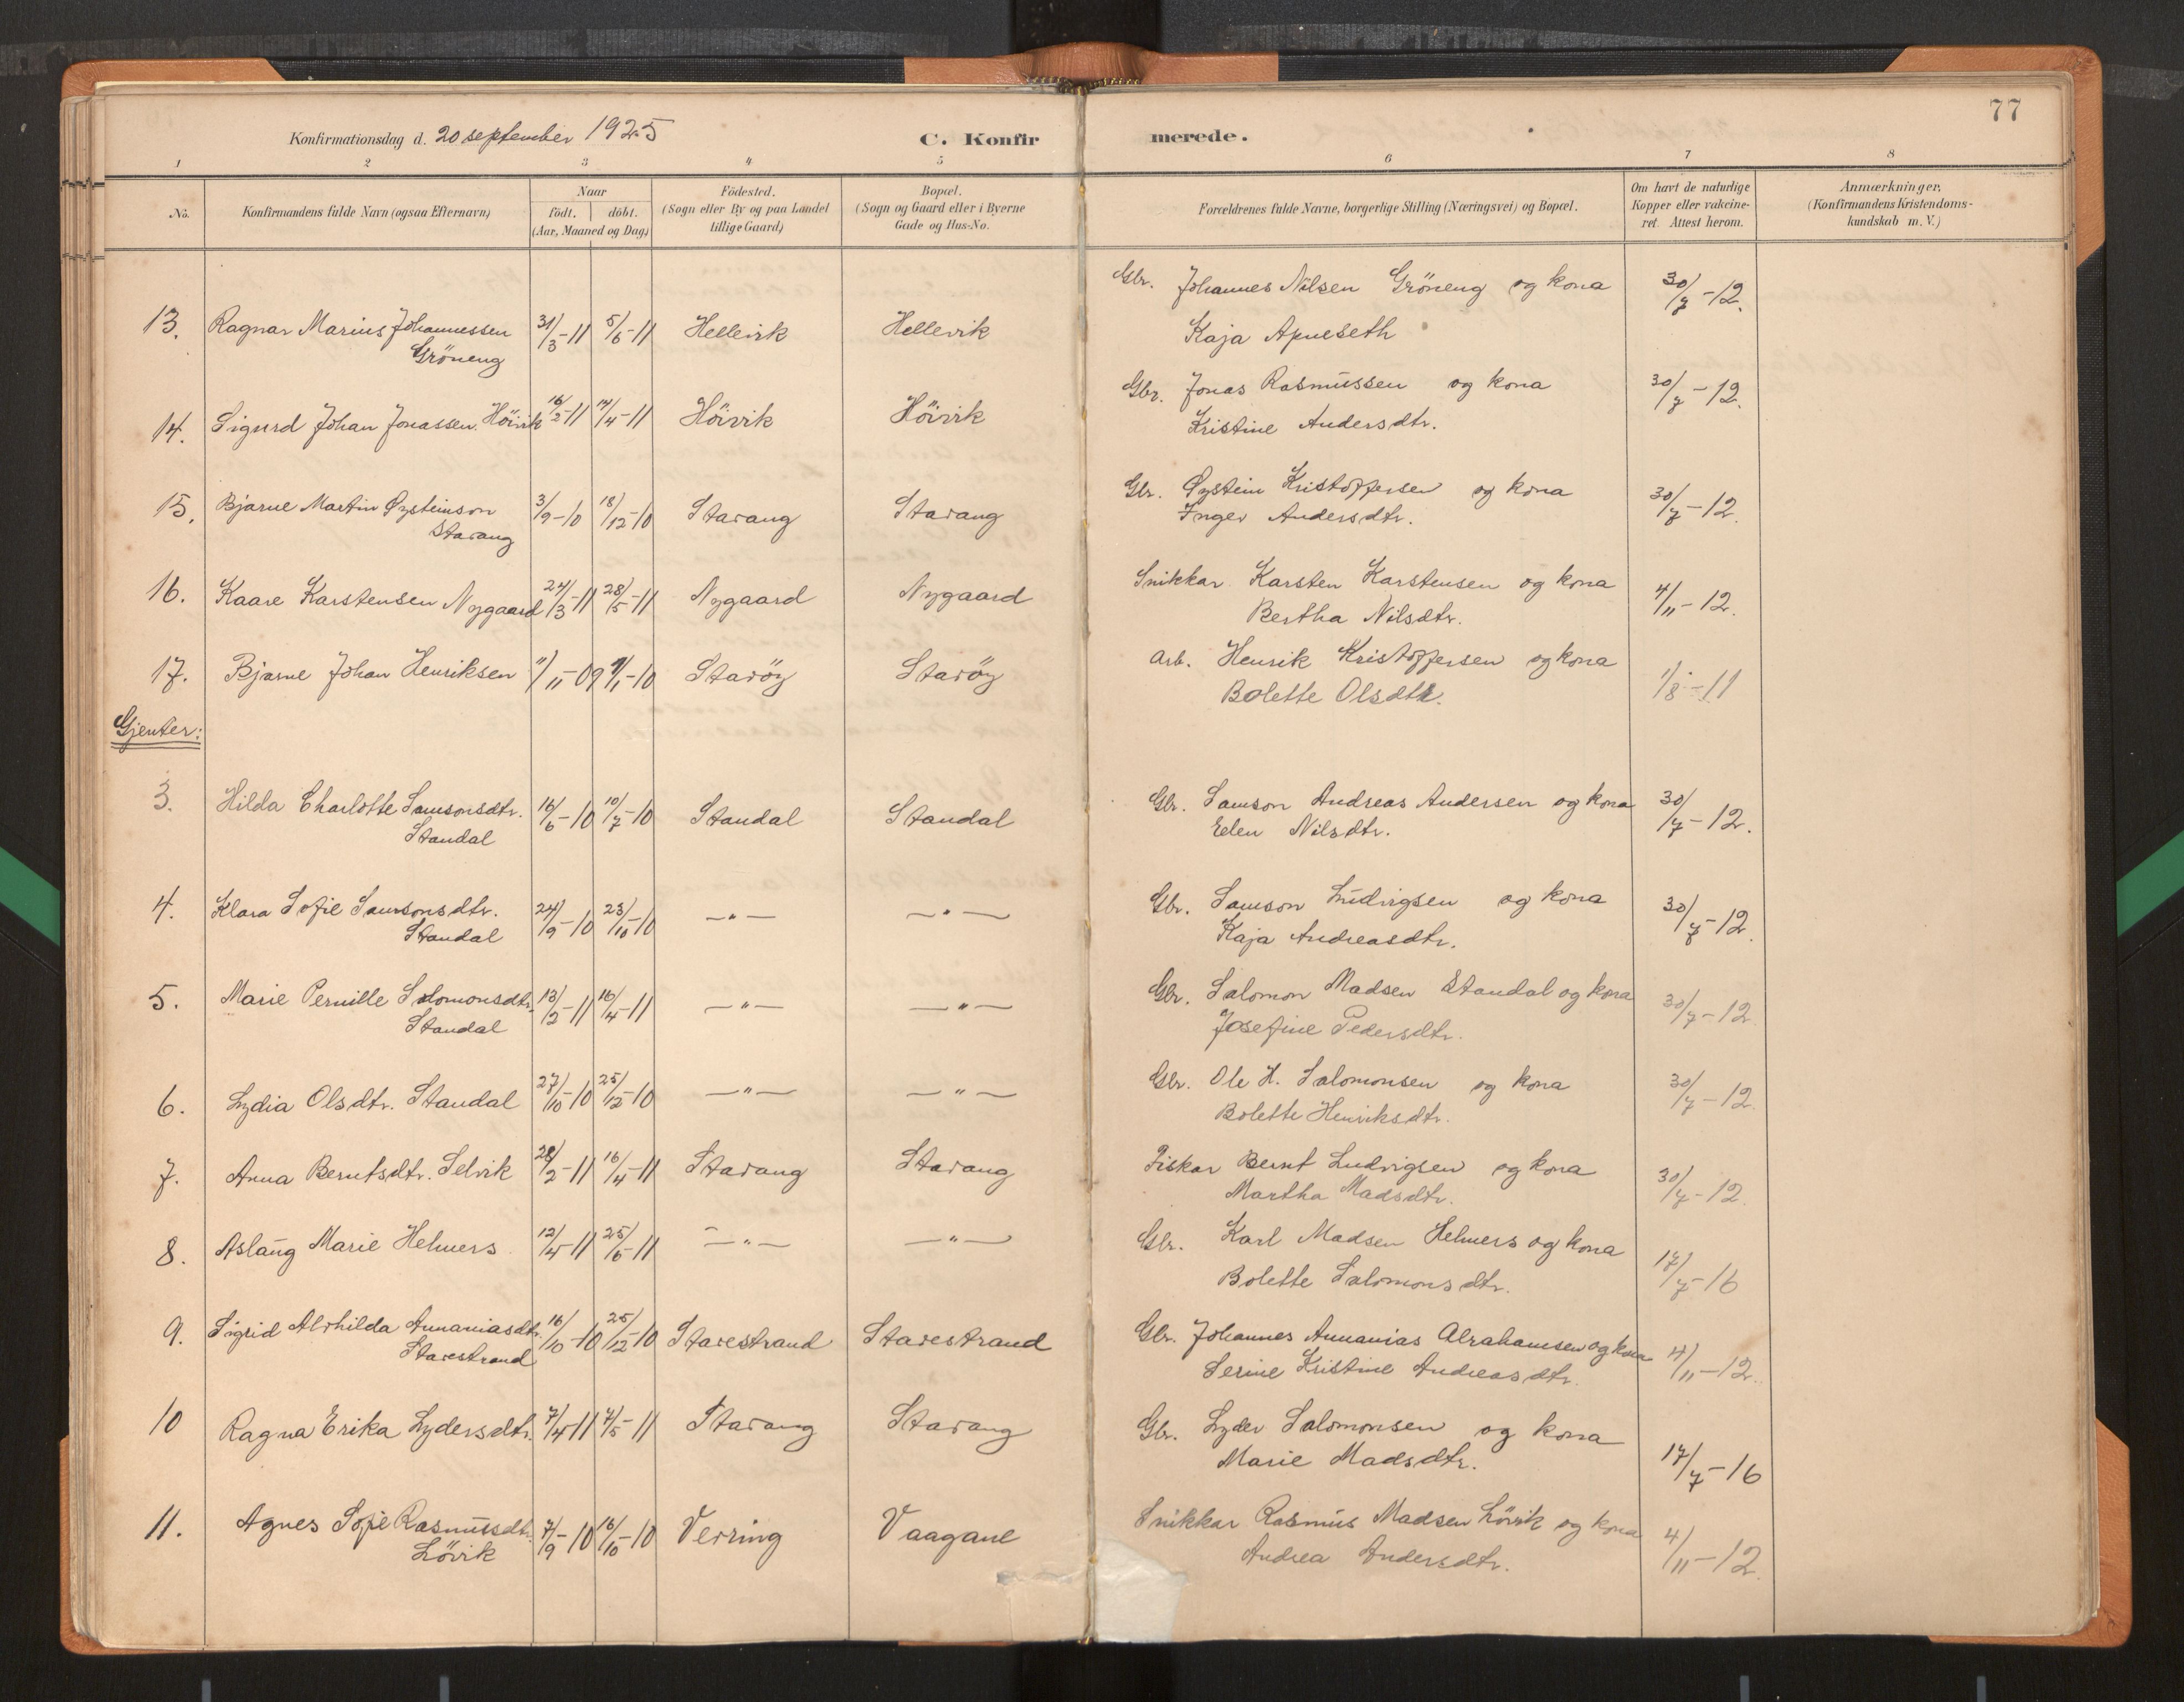 77
Konfirmationsdag d. 20 september 1925
C. Konfirmerede.
1 2 3 4 5 6 7 8
No.
Konfirmandens fulde Navn (ogsaa Efternavn)
Naar
födt. döbt.
(Aar, Maaned og Dag)
Födested.
(Sogn eller By og paa Landet
tillige Gaard)
Bopæl.
(Sogn og Gaard eller i Byerne
Gade og Hus-No.
Forældrenes fulde Navne, borgerlige Stilling (Næringsvei) og Bopæl.
Om havt de naturlige
Kopper eller vakcine-
ret. Attest herom.
Anmærkninger,
(Konfirmandens Kristendoms-
kundskab m. V.)
13. Ragnar Marius Johannessen 31/3-11 5/6-11 Hellevik Hellevik Gbr. Johannes Nilsen Gröneng og kona 30/7-12.
Gröneng Kaja Apneseth
14. Sigurd Johan Jonassen Höivik 16/2-11 17/4-11 Höivik Höivik Gbr. Jonas Rasmussen og kona 30/7-12.
Kristine Andersdtr.
15. Bjarne Martin Øysteinson 3/9-10 18/12-10 Stavang Stavang Gbr. Øystein Kristoffersen og kona 30/7-12.
Stavang Inger Andersdtr.
16. Kaare Karstensen Nygaard 24/3-11 28/5-11 Nygaard Nygaard Snikkar Karsten Karstensen og kona 4/11-12.
Bertha Nilsdtr.
17. Bjarne Johan Henriksen 11/11-09 9/1-10 Stavöy Stavöy Arb. Henrik Kristoffersen og kona 1/8-11
Bolette Olsdtr.
Gjenter:
3. Hilda Charlotte Samsonsdtr. 16/6-10 10/7-10 Standal Standal Gbr. Samson Andreas Andersen og kona 30/7-12.
Standal Elen Nilsdtr.
4. Klara Sofie Samsonsdtr. 24/9-10 23/10-10 —"— —"— Gbr. Samson Ludvigsen og kona 30/7-12.
Standal Kaja Andreasdtr.
5. Marie Pernille Salomonsdtr. 13/2-11 16/4-11 —"— —"— Gbr. Salomon Madsen Standal og kona 30/7-12
Standal Josefine Pedersdtr.
6. Lydia Olsdtr. Standal 27/10-10 25/12-10 —"— —"— Gbr. Ole H. Salomonsen og kona 30/7-12.
Bolette Henriksdtr.
7. Anna Berntsdtr. Selvik 28/2-11 16/4-11 Stavang Stavang Fiskar Bernt Ludvigsen og kona 30/7-12.
Martha Madsdtr.
8. Aslaug Marie Helmers 12/4-11 25/6-11 —"— —"— Gbr. Karl Madsen Helmers og kona 17/7-16
Bolette Salomonsdtr.
9. Sigrid Alvhilda Annaniasdtr. 16/10-10 25/12-10 Stavestrand Stavestrand Gbr. Johannes Annanias Abrahamsen og kona 4/11-12.
Stavestrand Serine Kristine Andreasdtr.
10 Ragna Erika Lydersdtr. 7/4-11 7/5-11 Stavang Stavang Gbr. Lyder Salomonsen og kona 17/7-16
Marie Madsdtr.
11. Agnes Sofie Rasmusdtr. 7/9-10 16/10-10 Verring Vaagane Snikkar Rasmus Madsen Lövik og kona 4/11-12.
Lövik Andrea Andersdtr.